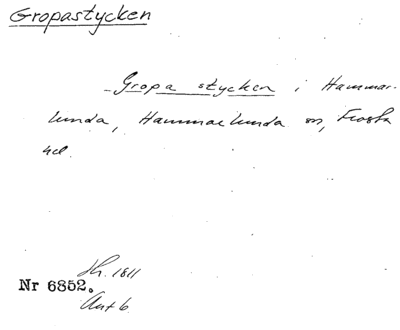 Gropastycken
Gropa stycken i Hammar-
lunda, Hammarlunda sn, Frosta
hd.
Sk. 1811
Nr 6852.
Akt 6